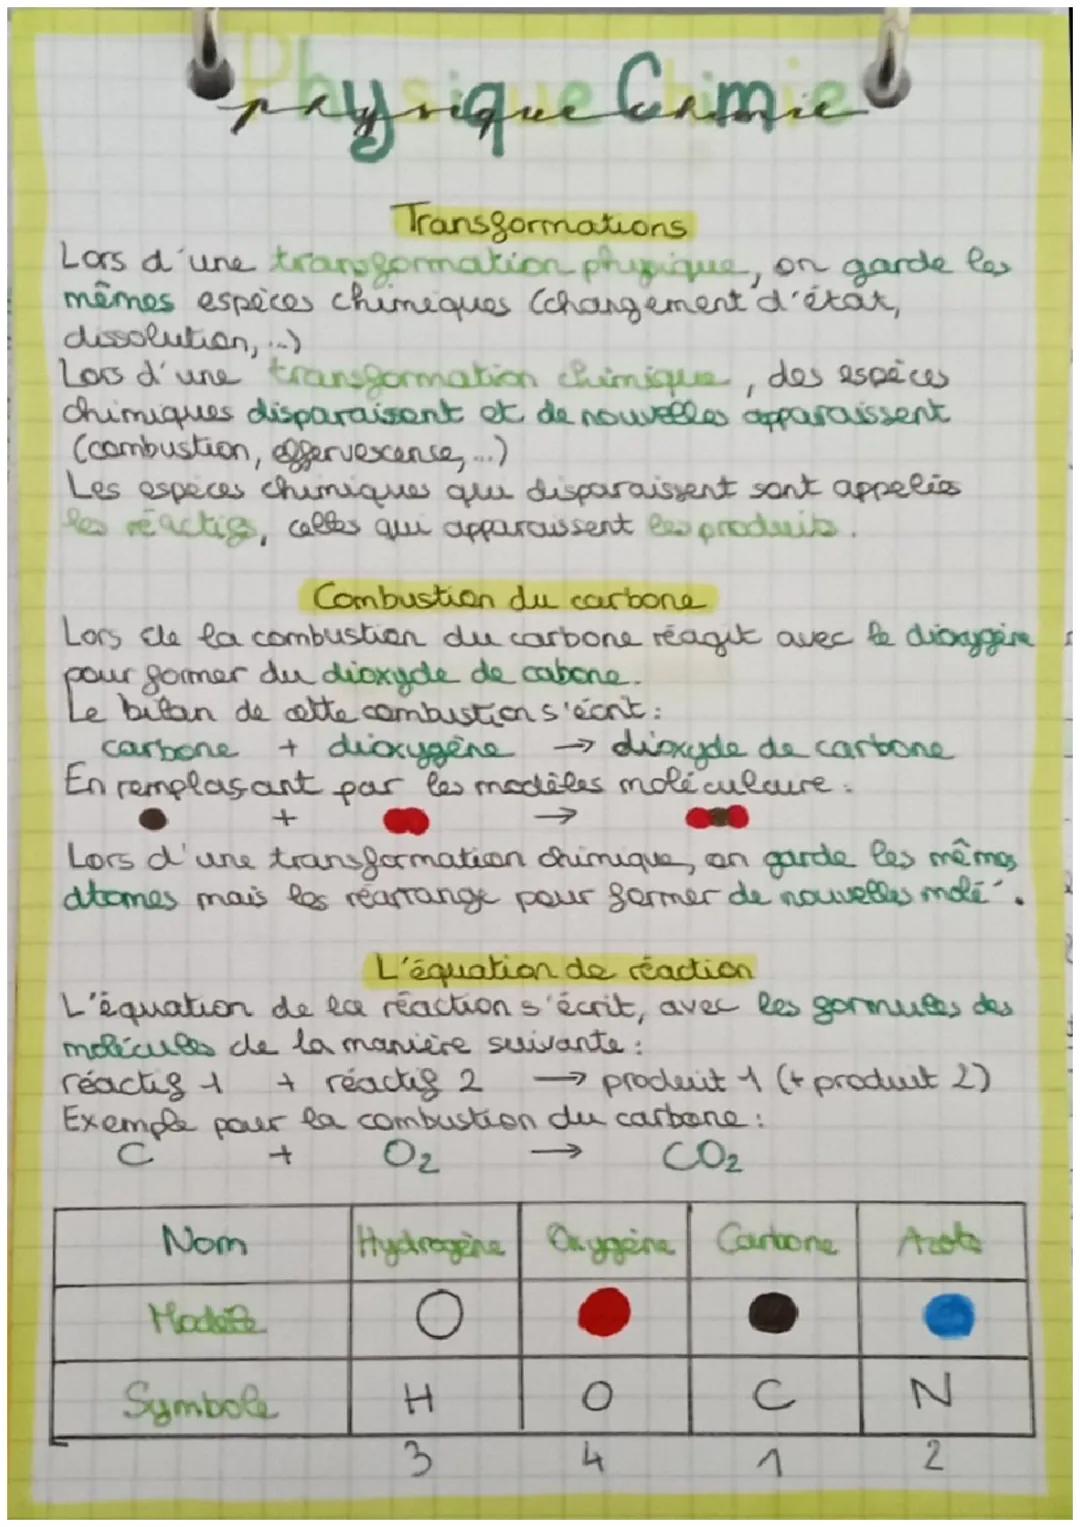 Physique Chimie
physique chimie
Transformations
Lors d'une transformation physique, on garde les
mêmes espèces chimiques (changement d'état,
dissolution, ...)
Lors d'une transformation chimique, des espèces
chimiques disparaissent et de nouvelles apparaissent
(combustion, effervescence, ...)
Les espèces chimiques qui disparaissent sont appelées
les réactifs, celles qui apparaissent les produits.
Combustion du carbone
Lors de la combustion du carbone réagit avec le dioxygène
pour former du dioxyde de cabone.
Le bilan de cette combustion s'écrit :
carbone + dioxygène → dioxyde de carbone
En remplaçant par les modèles moléculaire :
+ →
Lors d'une transformation chimique, on garde les mêmes
atomes mais les réarrange pour former de nouvelles molé.
L'équation de réaction
L'équation de la réaction s'écrit, avec les formules des
molécules de la manière suivante :
réactif 1 + réactif 2 → produit 1 (+ produit 2)
Exemple pour la combustion du carbone :
C + O₂ → CO₂
Nom Hydrogène Oxygène Carbone Azote
Modèle
Symbole H O C N
3 4 1 2